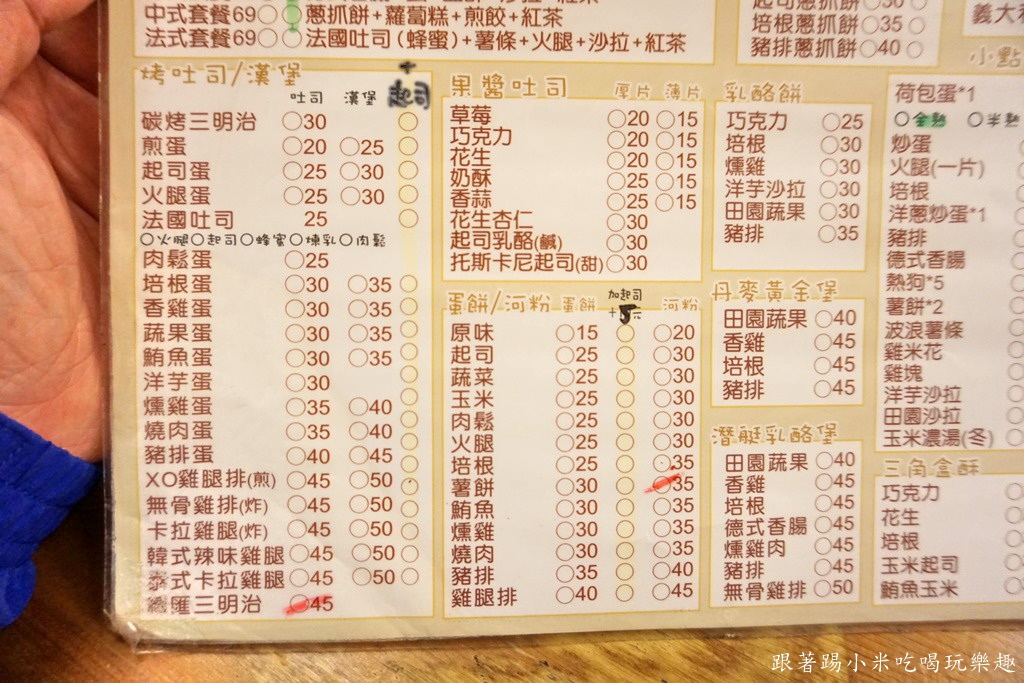 中式套餐69○○蔥抓餅+蘿蔔糕+煎餃+紅茶
法式套餐69○○法國吐司(蜂蜜)+薯條+火腿+沙拉+紅茶
培根蔥抓餅○35○
豬排蔥抓餅○40○
烤吐司/漢堡
吐司 漢堡 +起司
碳烤三明治 ○30 ○
煎蛋 ○20 ○25 ○
起司蛋 ○25 ○30 ○
火腿蛋 ○25 ○30 ○
法國吐司 25 ○
○火腿○起司○蜂蜜○煉乳○肉鬆
肉鬆蛋 ○25
培根蛋 ○30 ○35 ○
香雞蛋 ○30 ○35 ○
蔬果蛋 ○30 ○35 ○
鮪魚蛋 ○30 ○35 ○
洋芋蛋 ○30 ○
燻雞蛋 ○35 ○40 ○
燒肉蛋 ○35 ○40 ○
豬排蛋 ○40 ○45 ○
XO雞腿排(煎) ○45 ○50 ○
無骨雞排(炸) ○45 ○50 ○
卡拉雞腿(炸) ○45 ○50 ○
韓式辣味雞腿 ○45 ○50 ○
泰式卡拉雞腿 ○45 ○50 ○
總匯三明治 ○45
果醬吐司 厚片 薄片
草莓 ○20 ○15
巧克力 ○20 ○15
花生 ○20 ○15
奶酥 ○25 ○15
香蒜 ○25 ○15
花生杏仁 ○30
起司乳酪(鹹) ○30
托斯卡尼起司(甜) ○30
蛋餅/河粉 蛋餅 加起司+5元 河粉
原味 ○15 ○ ○20
起司 ○25 ○ ○30
蔬菜 ○25 ○ ○30
玉米 ○25 ○ ○30
肉鬆 ○25 ○ ○30
火腿 ○25 ○ ○30
培根 ○25 ○ ○35
薯餅 ○30 ○ ○35
鮪魚 ○30 ○ ○35
燻雞 ○30 ○ ○35
燒肉 ○30 ○ ○35
豬排 ○35 ○ ○40
雞腿排 ○40 ○ ○45
乳酪餅
巧克力 ○25
培根 ○30
燻雞 ○30
洋芋沙拉 ○30
田園蔬果 ○30
豬排 ○35
丹麥黃金堡
田園蔬果 ○40
香雞 ○45
培根 ○45
豬排 ○45
潛艇乳酪堡
田園蔬果 ○40
香雞 ○45
培根 ○45
德式香腸 ○45
燻雞肉 ○45
豬排 ○45
無骨雞排 ○50
義大利
小點
荷包蛋*1
○全熟 ○半熟
炒蛋
火腿(一片)
培根
洋蔥炒蛋*1
豬排
德式香腸
熱狗*5
薯餅*2
波浪薯條
雞米花
雞塊
洋芋沙拉
田園沙拉
玉米濃湯(冬)
三角盒酥
巧克力
花生
培根
玉米起司
鮪魚玉米
跟著踢小米吃喝玩樂趣